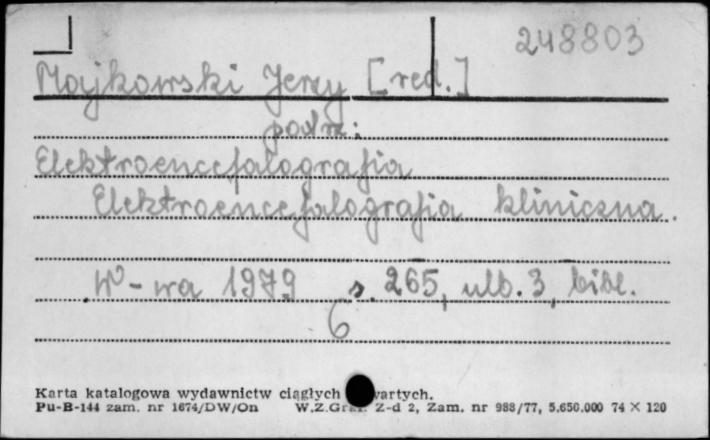 248803
Majkowski Jerzy [red.]
podrz:
Elektroencefalografia
Elektroencefalografia kliniczna.
W-wa 1979 s. 265, ulb. 3, bibl.
6
Karta katalogowa wydawnictw ciągłych
Pu-B-144 zam. nr 1674/DW/On W.Z.Graf. Z-d 2, Zam. nr 988/77, 5.650.000 74 X 120